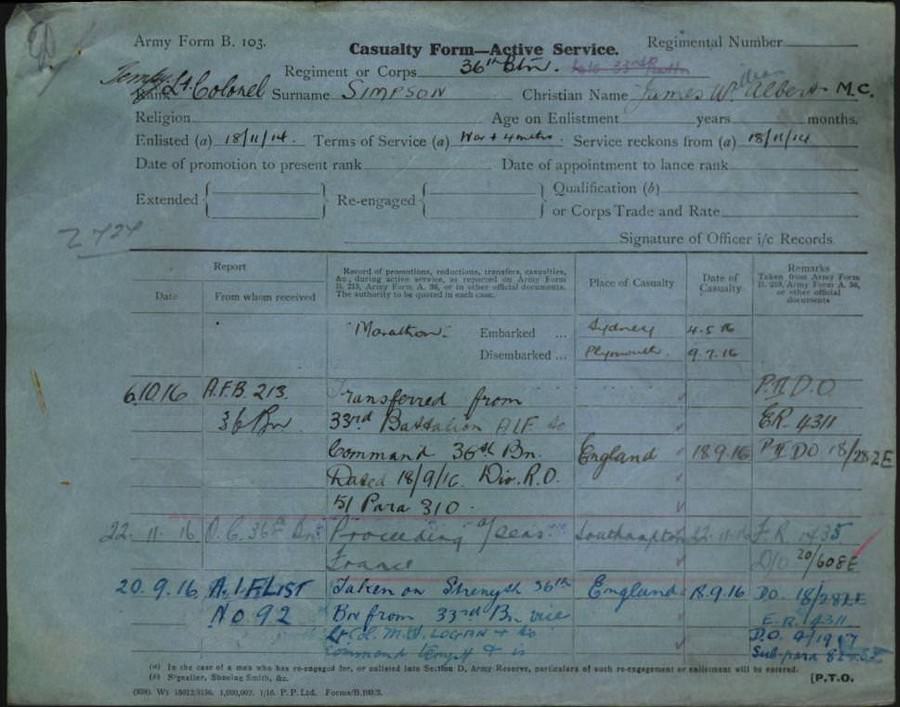 Army Form B. 103.
Casualty Form—Active Service.
Regimental Number
Regiment or Corps 36th Btn. late 33rd Battn
Tempy. Lt. Colonel Surname SIMPSON Christian Name James W. Albert M.C.
Religion Age on Enlistment years months.
Enlisted (a) 18/11/14. Terms of Service (a) War + 4 mnths. Service reckons from (a) 18/11/14
Date of promotion to present rank Date of appointment to lance rank
Extended Re-engaged Qualification (b)
or Corps Trade and Rate
Z 424
Signature of Officer i/c Records
Report
Date From whom received
Record of promotions, reductions, transfers, casualties, &c., during active service, as reported on Army Form B. 213, Army Form A. 36, or in other official documents. The authority to be quoted in each case.
Place of Casualty
Date of Casualty
Remarks
Taken from Army Form B. 213, Army Form A. 36, or other official documents
"Marathon". Embarked ... Sydney 4.5.16
Disembarked ... Plymouth. 9.7.16
6.10.16 A.F.B. 213. Transferred from P.II D.O
36 Bn 33rd Battalion AIF to ER. 4311
Command 36th Bn. England 18.9.16 P.II DO 18/282E
Dated 18/9/16. Div. R.O.
51 Para 310.
22. 11. 16 O.C. 36th Bn Proceeding o/seas Southampton 22.11.16 F.R. 1435
France D/O 20/608E
20.9.16 A.I.F LIST Taken on Strength 36th England 18.9.16 DO 18/282E
No 92 Bn from 33rd Bn vice E.R. 4311
Lt Col. M.St. LOGAN + to D.O. 9/1917
Command
(a) In the case of a man who has re-engaged for, or enlisted into Section D, Army Reserve, particulars of such re-engagement or enlistment will be entered.
(b) Signaller, Shoeing Smith, &c.
[P.T.O.
1,000,000. 1/16. P.P. Ltd. Forms/B.103/3.